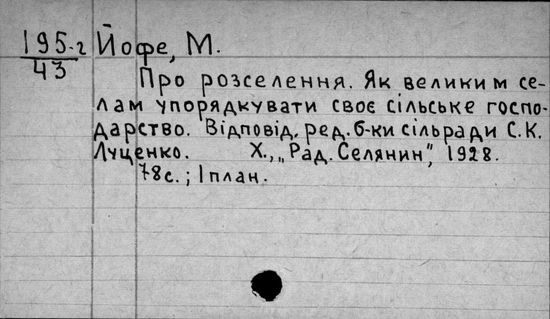 195-г Йофе, М.
43
Про розселення. Як великим се-
лам упорядкувати своє сільське госпо-
дарство. Відповід. ред. б-ки сільради С. К.
Луценко. Х., „Рад. Селянин", 1928.
78с.; 1 план.